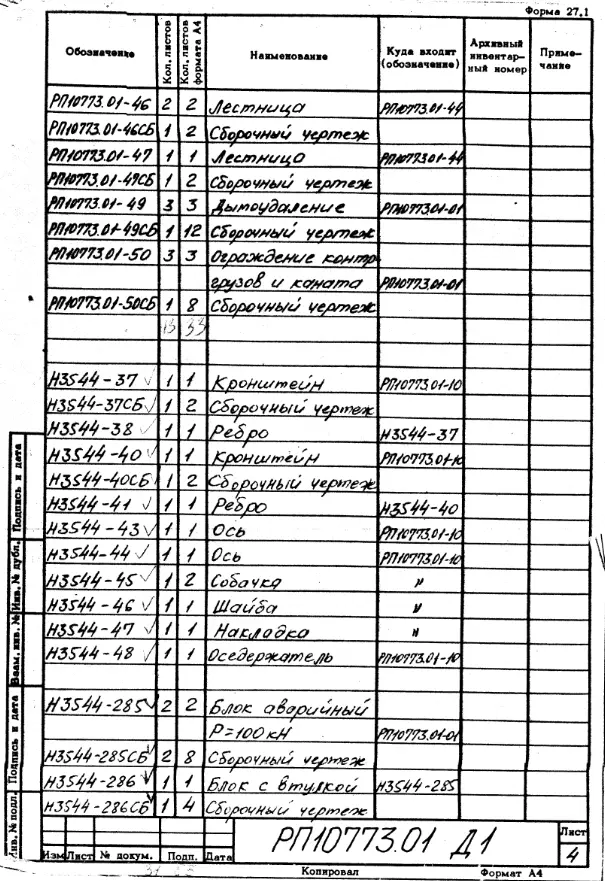 Форма 27,1
Обозначение Кол. листов Кол. листов формата А4 Наименование Куда входит (обозначение) Архивный инвентарный номер Примечание
РП10773.01-46 2 2 Лестница РП10773.01-44
РП10773.01-46СБ 1 2 Сборочный чертеж
РП10773.01-47 1 1 Лестница РП10773.01-44
РП10773.01-47СБ 1 2 Сборочный чертеж
РП10773.01-49 3 3 Дымоудаление РП10773.01-01
РП10773.01-49СБ 1 12 Сборочный чертеж
РП10773.01-50 3 3 Ограждение контр
грузов и каната РП10773.01-01
РП10773.01-50СБ 1 8 Сборочный чертеж
13 33
Н3544-37 √ 1 1 Кронштейн РП10773.01-10
Н3544-37СБ √ 1 2 Сборочный чертеж
Н3544-38 √ 1 1 Ребро Н3544-37
Н3544-40 √ 1 1 Кронштейн РП10773.01-10
Н3544-40СБ √ 1 2 Сборочный чертеж
Н3544-41 √ 1 1 Ребро Н3544-40
Н3544-43 √ 1 1 Ось РП10773.01-10
Н3544-44 √ 1 1 Ось РП10773.01-10
Н3544-45 √ 1 2 Собачка "
Н3544-46 √ 1 1 Шайба "
Н3544-47 √ 1 1 Накладка "
Н3544-48 √ 1 1 Оседержатель РП10773.01-10
Н3544-285 √ 2 2 Блок аварийный
Р=100кН РП10773.01-01
Н3544-285СБ √ 2 8 Сборочный чертеж
Н3544-286 √ 1 1 Блок с втулкой Н3544-285
Н3544-286СБ √ 1 4 Сборочный чертеж
Подпись и дата
Инв. № дубл.
Взам. инв. №
Подпись и дата
Инв. № подл.
Изм Лист № докум. Подп. Дата
РП10773.01 Д1
Лист
4
Копировал Формат А4